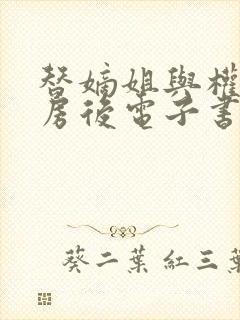 替嫡姐與權
房後電子書
葵二葉 紅三葉